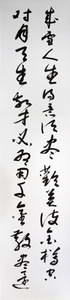 成雪人生得意須盡歡莫使金樽空
對月天生我材必有用千金散盡還